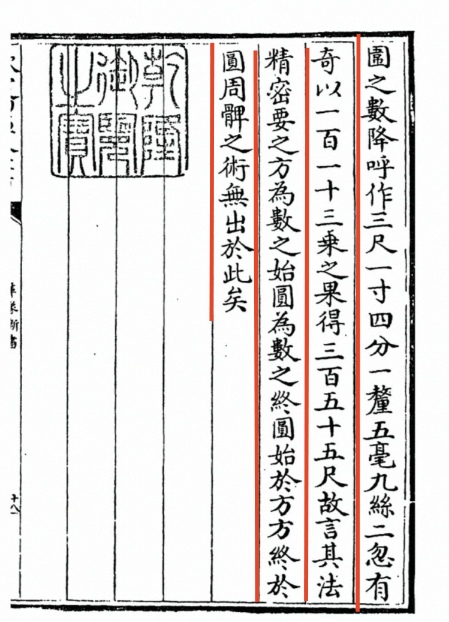 圍之數降呼作三尺一寸四分一釐五毫九絲二忽有
奇以一百一十三乗之果得三百五十五尺故言其法
精密要之方為數之始圓為數之終圓始於方方終於
圓周髀之術無出於此矣
乾隆御覽之寶
革象新書
十八